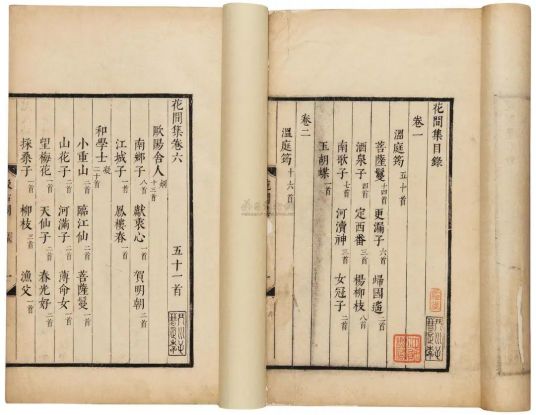 花間集目錄
卷一
溫庭筠 五十首
菩薩鬘十四首 更漏子六首 歸國遙二首
酒泉子四首 定西番三首 楊柳枝八首
南歌子七首 河瀆神三首 女冠子二首
玉胡蝶一首
卷二
溫庭筠 十六首
花間集卷六 五十一首
歐陽舍人炯 十三首
南鄉子八首 獻衷心一首 賀明朝二首
江城子一首 鳳樓春一首
和學士凝 二十首
小重山二首 臨江仙二首 菩薩鬘一首
山花子二首 河滿子二首 薄命女一首
望梅花一首 天仙子二首 春光好二首
採桑子一首 柳枝三首 漁父一首